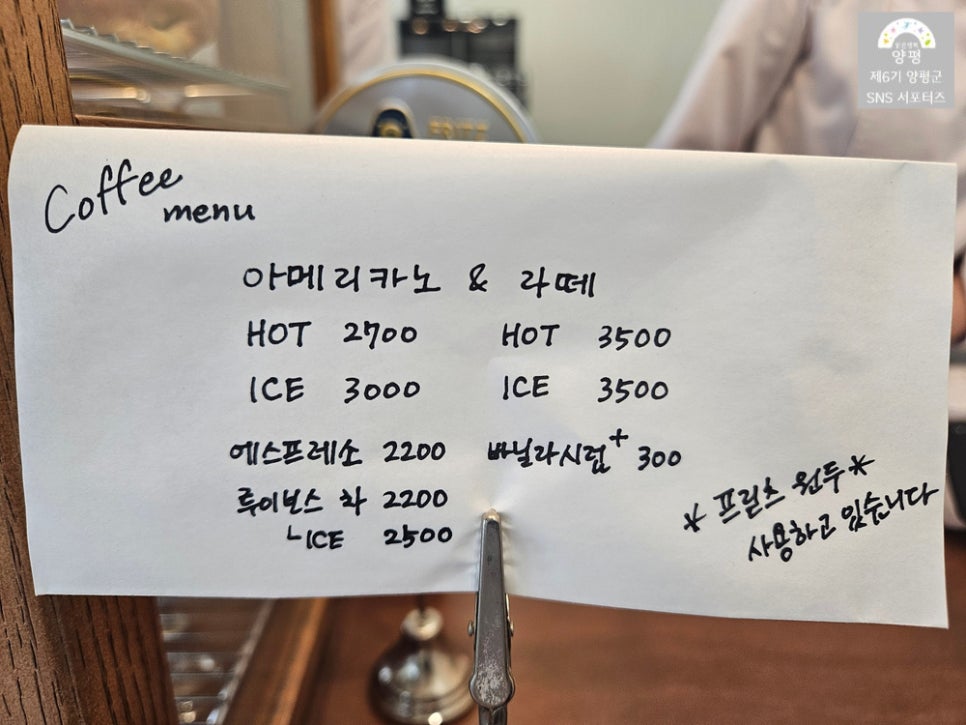 Coffee
menu
아메리카노 & 라떼
HOT 2700 HOT 3500
ICE 3000 ICE 3500
에스프레소 2200 바닐라시럽+ 300
루이보스 차 2200
ㄴICE 2500
* 프릳츠 원두 *
사용하고 있습니다
양평
제6기 양평군
SNS 서포터즈